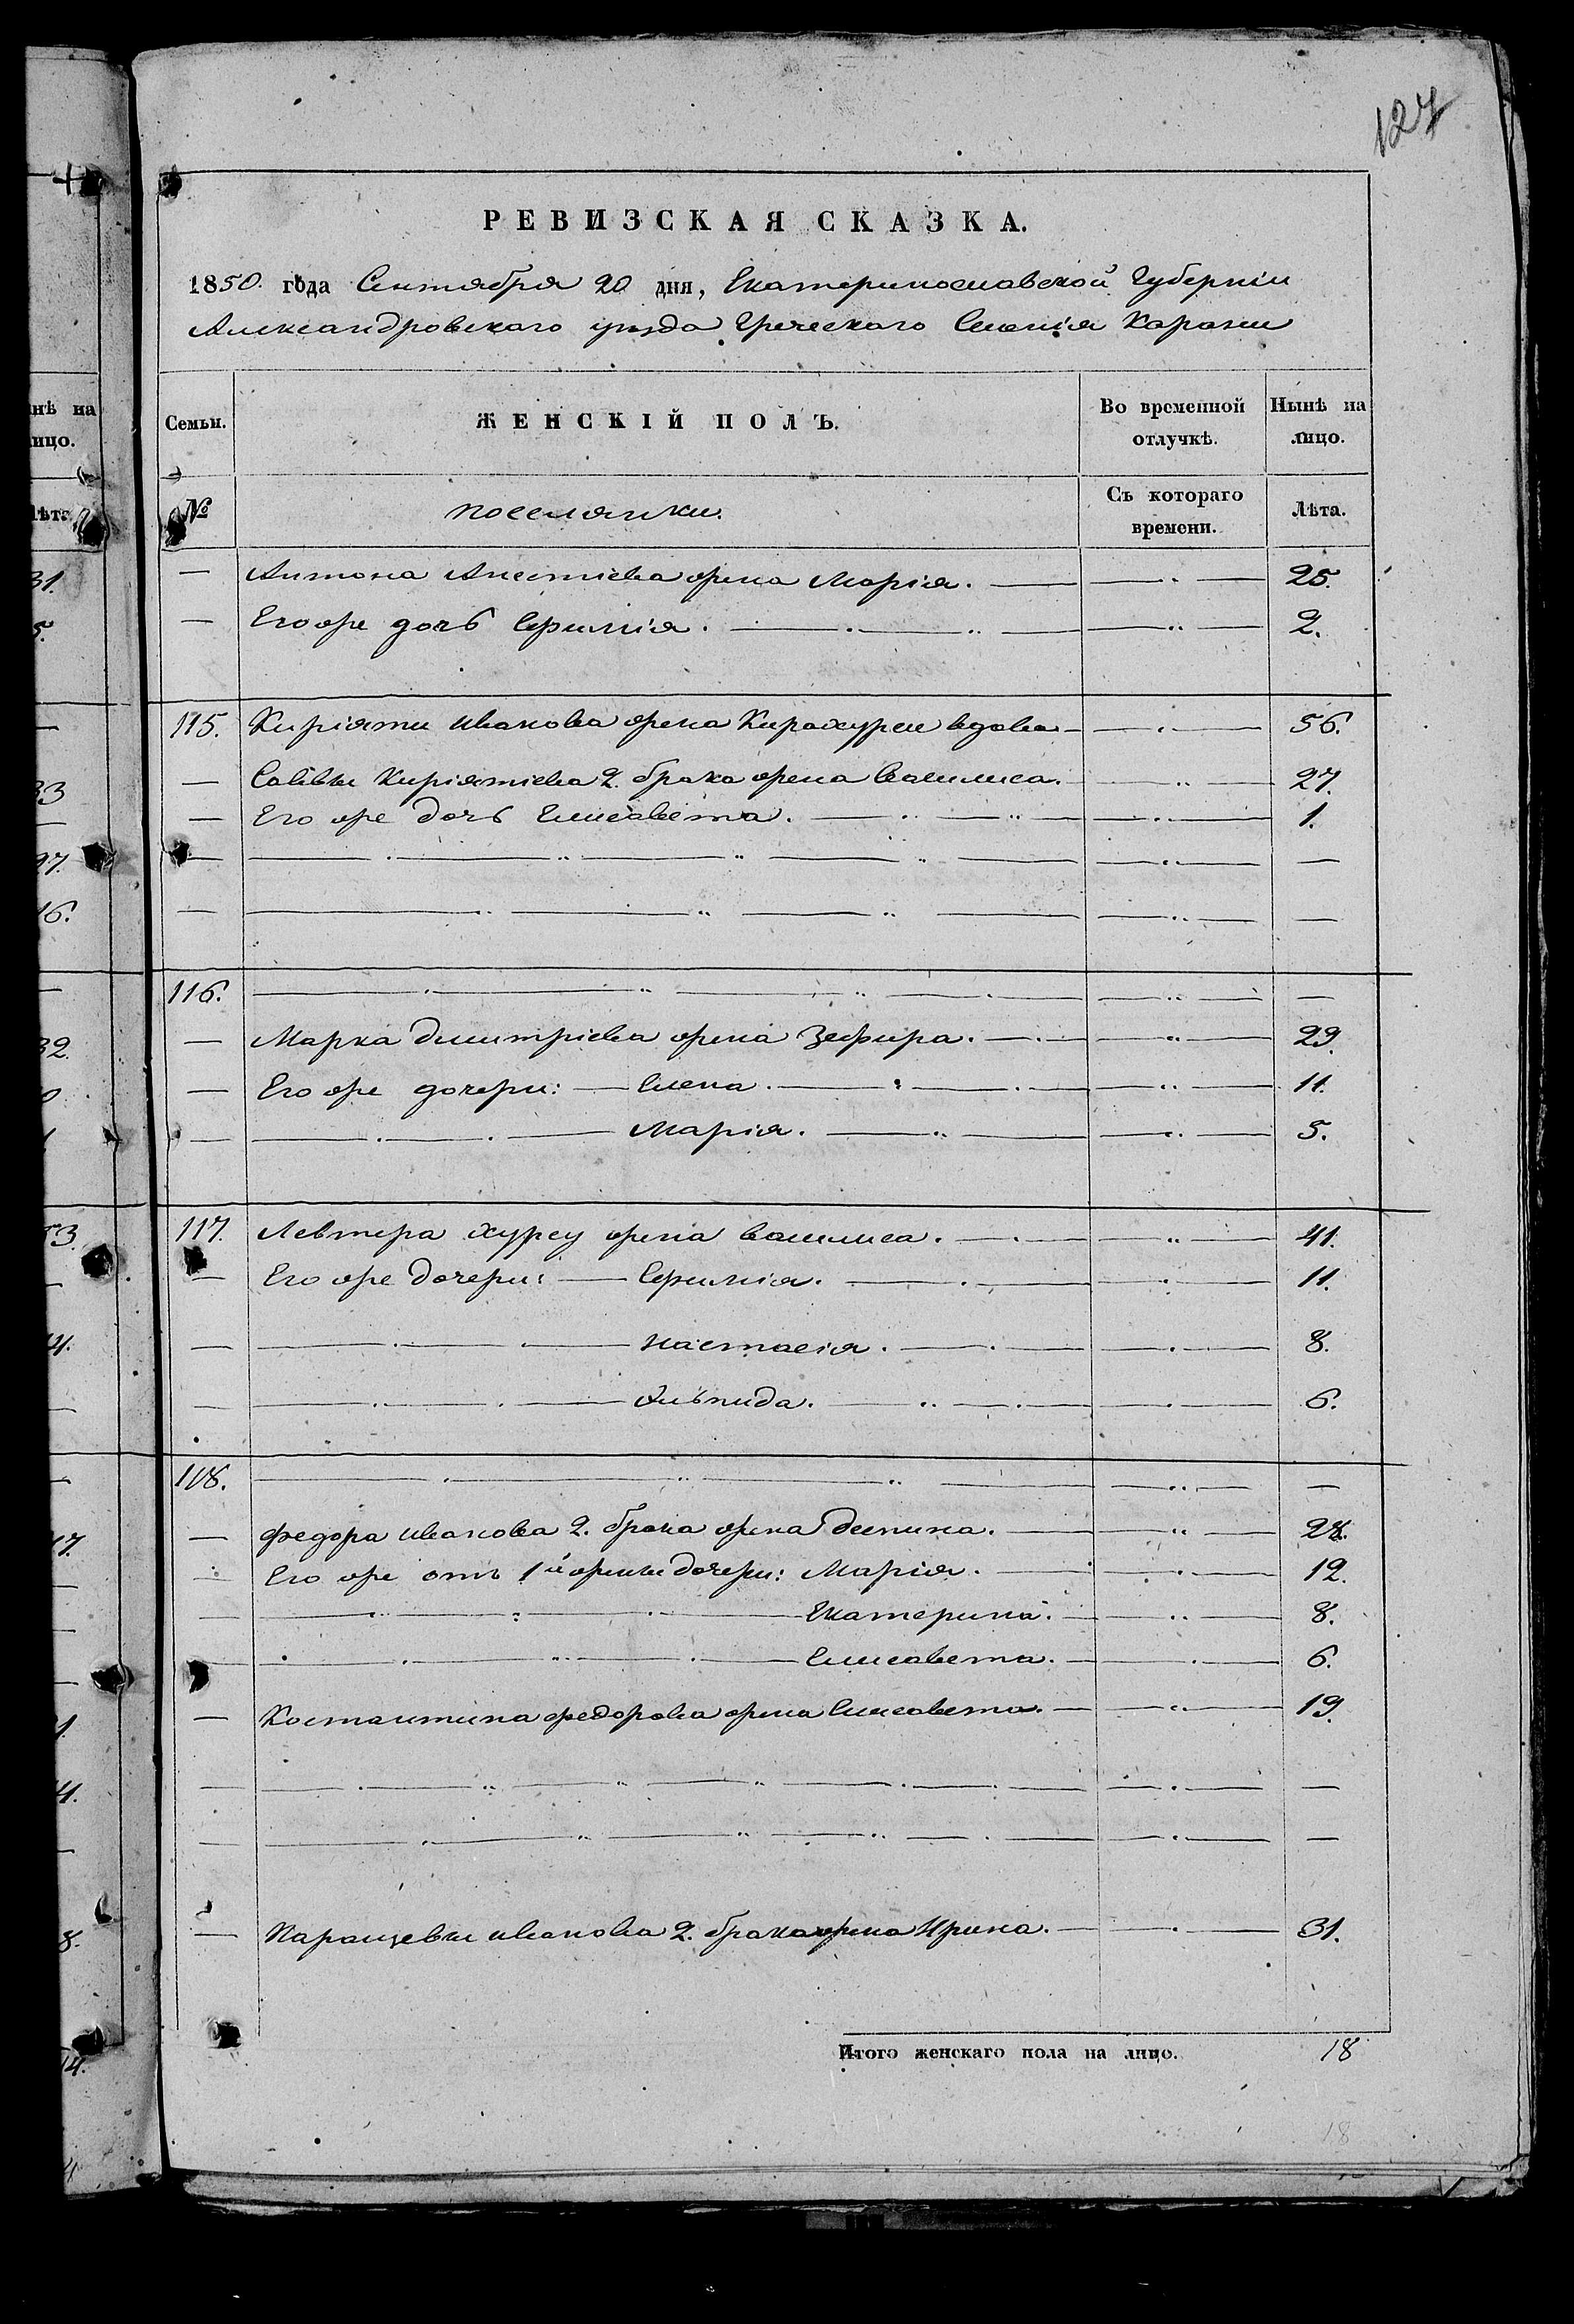 127
РЕВИЗСКАЯ СКАЗКА.
1850. года Сентября 20 дня, Екатеринославской Губерніи
Александровскаго уѣзда Греческаго Селенія Карани
Семьи. ЖЕНСКІЙ ПОЛЪ. Во временной отлучкѣ. Нынѣ на лицо.
№ поселянки. Съ котораго времени. Лѣта.
— Антона Анестіева жена Марія. — 25.
— Его же дочь Ефимія. — 2.
115. Киріяти Иванова жена вдова — 56.
— Саввы Киріятіева 2. брака жена Василиса. — 27.
— Его же дочь Елисавета. — 1.
116.
— Марка Димитріева жена Зефира. — 29.
— Его же дочери: — Елена. — 11.
— Марія. — 5.
117. Левтера Хурсу жена Василиса. — 41.
— Его же дочери: — Ефимія. — 11.
— Настасія. — 8.
— Ельпида. — 6.
118.
— Федора Иванова 2. брака жена Деспина. — 28.
— Его же отъ 1й жены дочери: Марія. — 12.
— Екатерина. — 8.
— Елисавета. — 6.
— Костантина Федорова жена Елисавета. — 19.
— Паращевы Иванова 2. брака жена Ирина. — 31.
Итого женскаго пола на лицо. 18
18
нѣ на
ицо.
ѣта
31.
5.
33
97.
16.
32.
53.